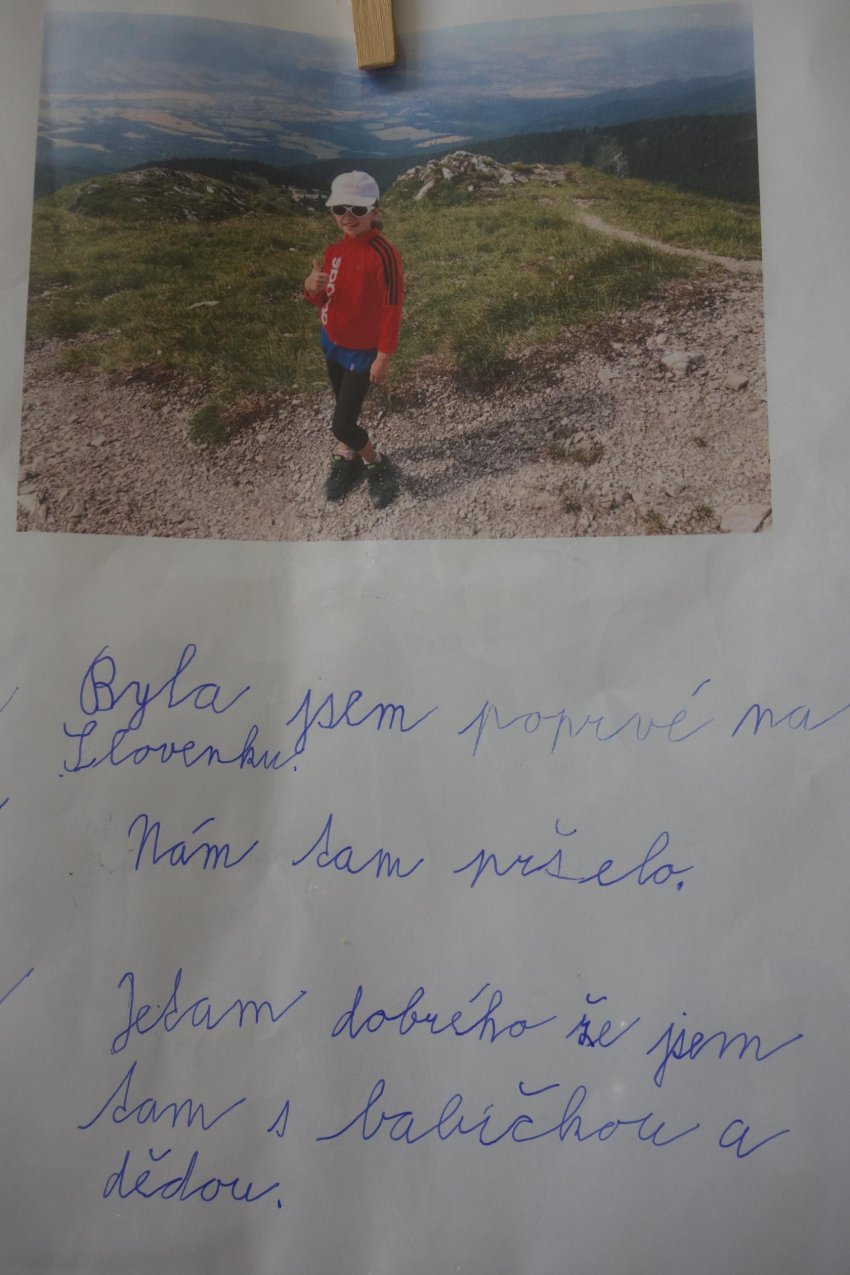 Byla jsem poprvé na
Slovenku.
Nám tam pršelo.
Jetam dobrého že jsem
tam s babičkou a
dědou.